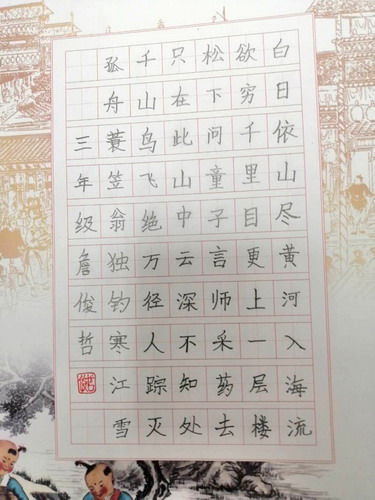 白日依山尽黄河入海流
欲穷千里目更上一层楼
松下问童子言师采药去
只在此山中云深不知处
千山鸟飞绝万径人踪灭
孤舟蓑笠翁独钓寒江雪
三年级詹俊哲